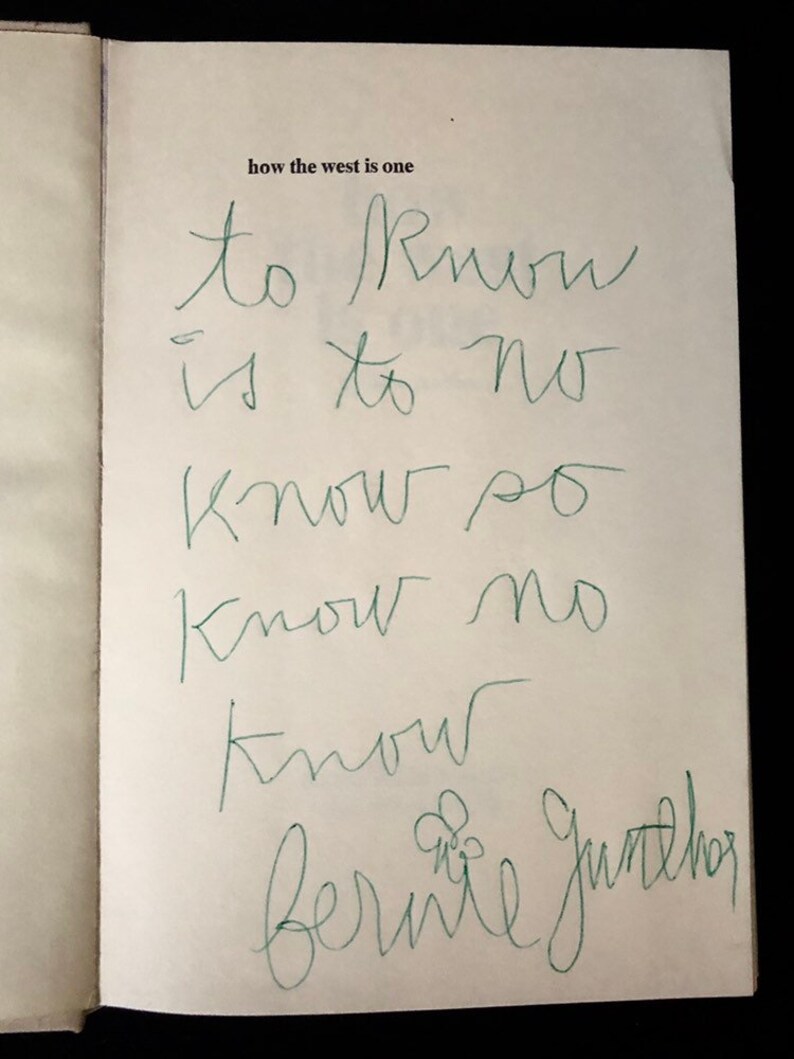 how the west is one
to know
is to no
know so
know no
know
Bernie Gunther